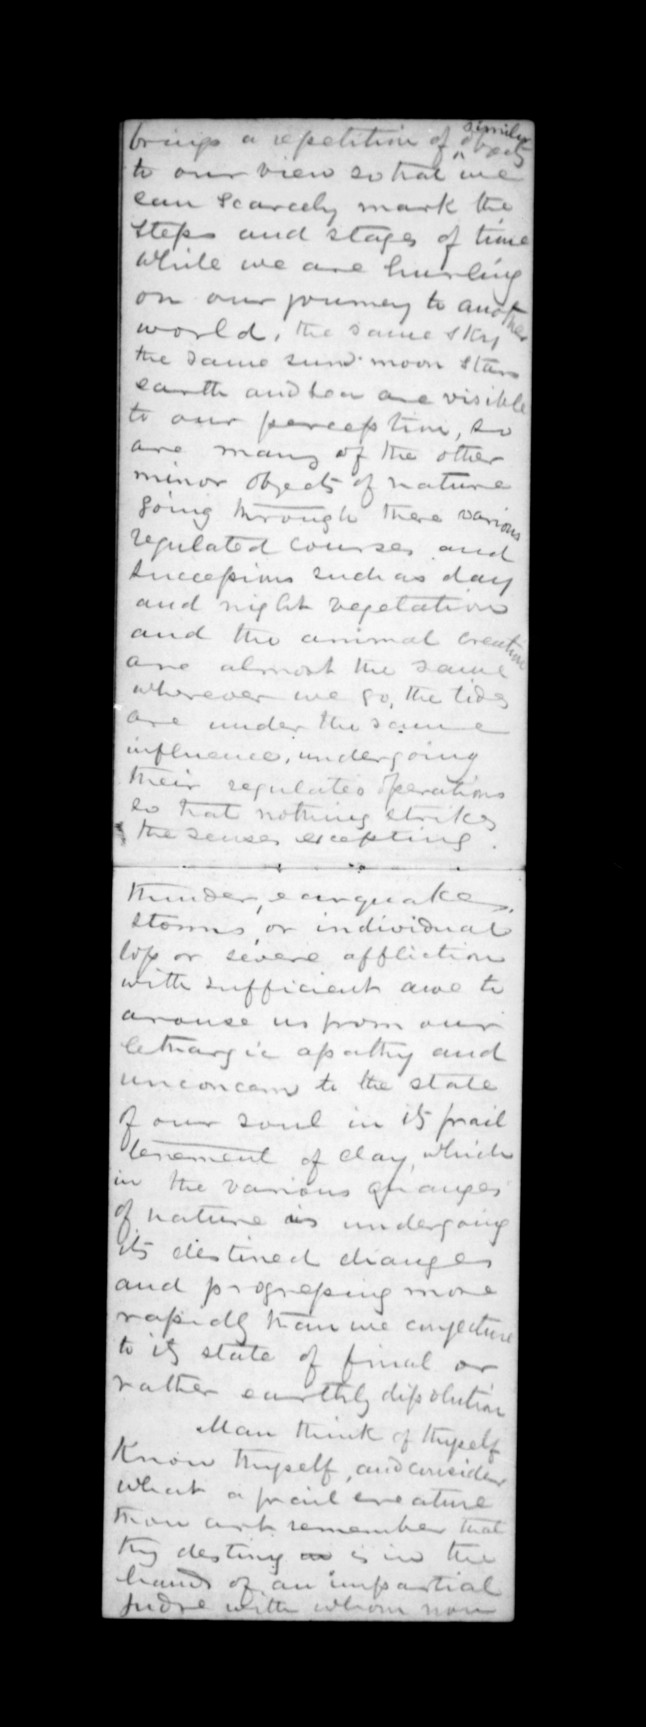 brings a repetition of similar objects
to our view so that we
can scarcely mark the
steps and stages of time
while we are hurling
on our journey to another
world, the same sky
the same sun moon stars
earth and sea are visible
to our perception, so
are many of the other
minor objects of nature
going through there various
regulated courses and
successions such as day
and night vegetation
and the animal creation
are almost the same
wherever we go, the tides
are under the same
influence, undergoing
their regulates operations
so that nothing strikes
the senses excepting
thunder, earquakes,
storms, or individual
loss or severe affliction
with sufficient awe to
arouse us from our
lethargic apathy and
unconcern to the state
of our soul in its frail
tenement of clay, which
in the various changes
of nature is undergoing
its destined changes
and progressing more
rapidly than we conjecture
to its state of final or
rather earthly dissolution
Man think of thyself
Know thyself, and consider
what a frail creature
thou art remember that
thy destiny is in the
hands of an impartial
Judge with whom now